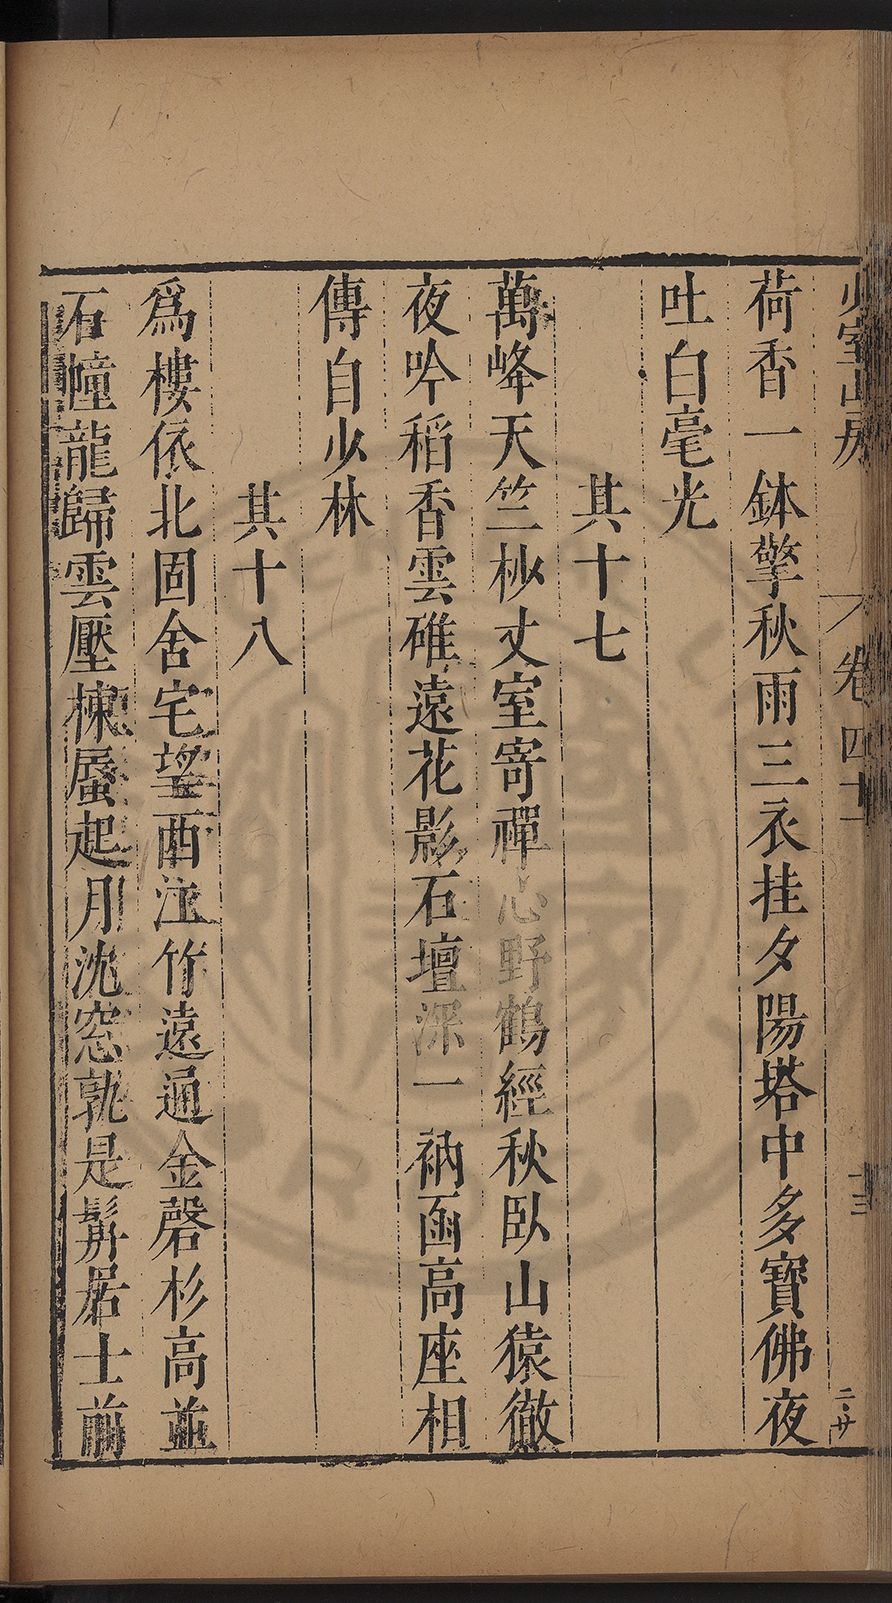 少室山房 卷四十 十三 二·廿
荷香一鉢擎秋雨三衣挂夕陽塔中多寶佛夜
吐白毫光
其十七
萬峰天竺杪丈室寄禪心野鶴經秋臥山猿徹
夜吟稻香雲碓遠花影石壇深一衲函高座相
傳自少林
其十八
為樓依北固舍宅望西泣竹遠通金磬杉高並
石幢龍歸雲壓棟蜃起月沈窓孰是髯居士前